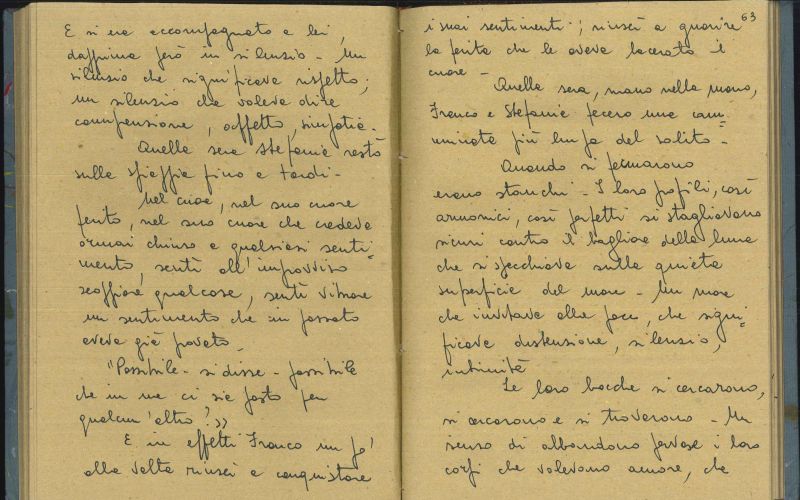 E si era accompagnato a lei,
dapprima però in silenzio - Un
silenzio che significava rispetto;
un silenzio che voleva dire
comprensione, affetto, simpatia -
Quella sera Stefania restò
sulla spiaggia fino a tardi -
Nel cuore, nel suo cuore
ferito, nel suo cuore che credeva
ormai chiuso a qualsiasi senti=
mento, sentì all'improvviso
scoppiare qualcosa, sentì vibrare
un sentimento che in passato
aveva già provato -
"Possibile - si disse - possibile
che in me ci sia posto per
qualcun'altro?"
E in effetti Franco un po'
alla volta riuscì a conquistare
63
i suoi sentimenti; riuscì a guarire
la ferita che le aveva lacerato il
cuore -
Quella sera, mano nella mano,
Franco e Stefania fecero una cam=
minata più lunga del solito -
Quando si fermarono
erano stanchi - I loro profili, così
armonici, così perfetti si stagliavano
sicuri contro il bagliore della luna
che si specchiava sulla quieta
superficie del mare - Un mare
che invitava alla pace, che signi=
ficava distensione, silenzio,
intimità
Le loro bocche si cercarono,
si cercarono e si trovarono - Un
senso di abbandono pervase i loro
corpi che volevano amore, che